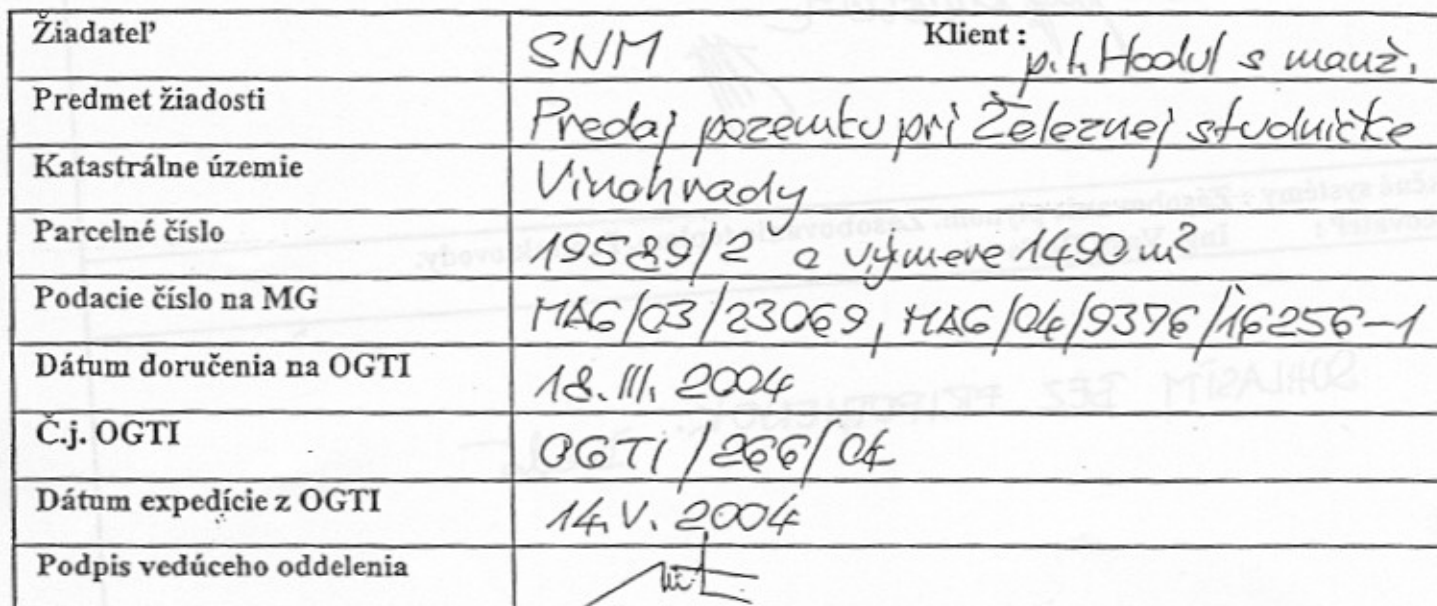 Žiadateľ SNM Klient: p. I. Hodul s manž.
Predmet žiadosti Predaj pozemku pri Železnej studničke
Katastrálne územie Vinohrady
Parcelné číslo 19589/2 o výmere 1490 m²
Podacie číslo na MG MAG/03/23069, MAG/04/9376/16256-1
Dátum doručenia na OGTI 18. III. 2004
Č.j. OGTI OGTI/266/04
Dátum expedície z OGTI 14. V. 2004
Podpis vedúceho oddelenia